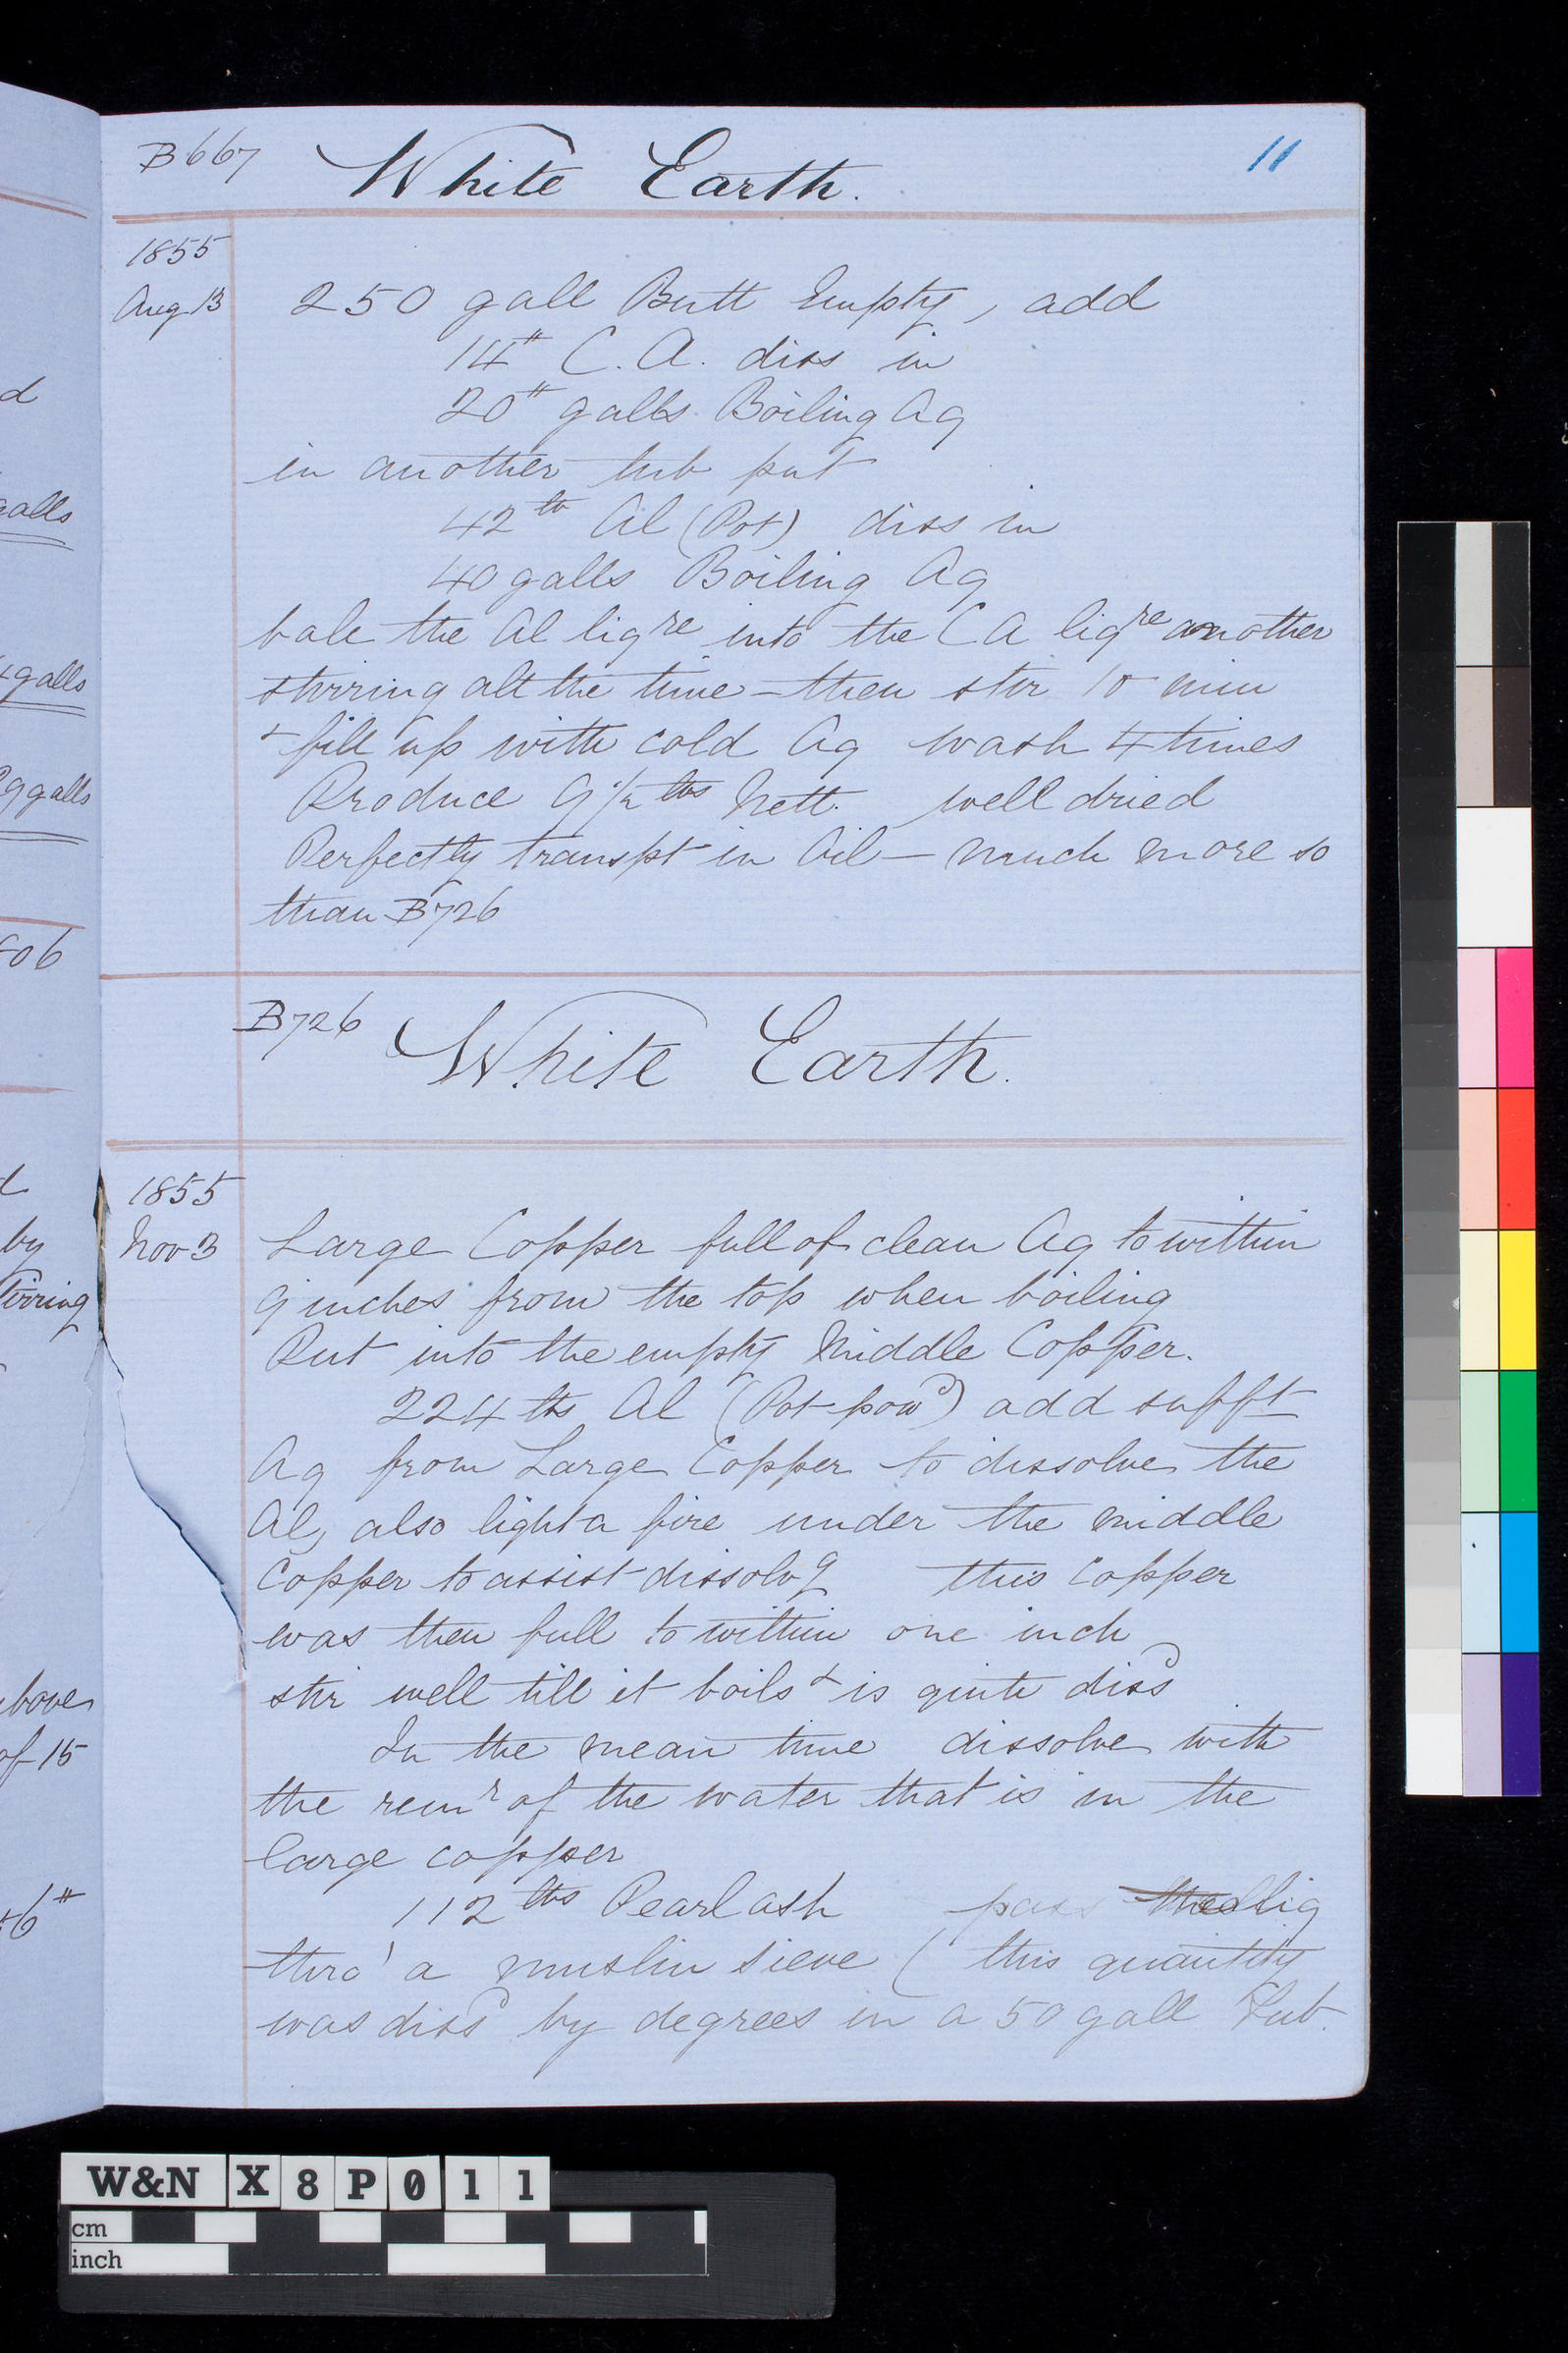 B667 White Earth. 11
1855
Aug 13 250 gall Butt Empty, add
14# C.A. diss in
20# galls Boiling Aq
in another tub put
42 lb Al (Pot) diss in
40 galls Boiling Aq
bale the Al liqre into the CA liqre another
stirring all the time - then stir 10 min
+ fill up with cold Aq wash 4 times
Produce 9½ lbs Nett. well dried
Perfectly transpt in Oil - much more so
than B726
B726 White Earth.
1855
Nov 3 Large Copper full of clean Aq to within
9 inches from the top when boiling
Put into the empty Middle Copper.
224 lbs Al (Pot-powd) add sufft
Aq from Large Copper to dissolve the
Al, also light a fire under the middle
Copper to assist dissolvg this Copper
was then full to within one inch
stir well till it boils + is quite dissd
In the mean time dissolve with
the remr of the water that is in the
large copper
112 lbs Pearlash pass the liq
thro' a muslin sieve (this quantity
was dissd by degrees in a 50 gall Tub.
d
galls
galls
galls
606
by
tirring
above
of 15
56#
W&N X8P011
cm
inch